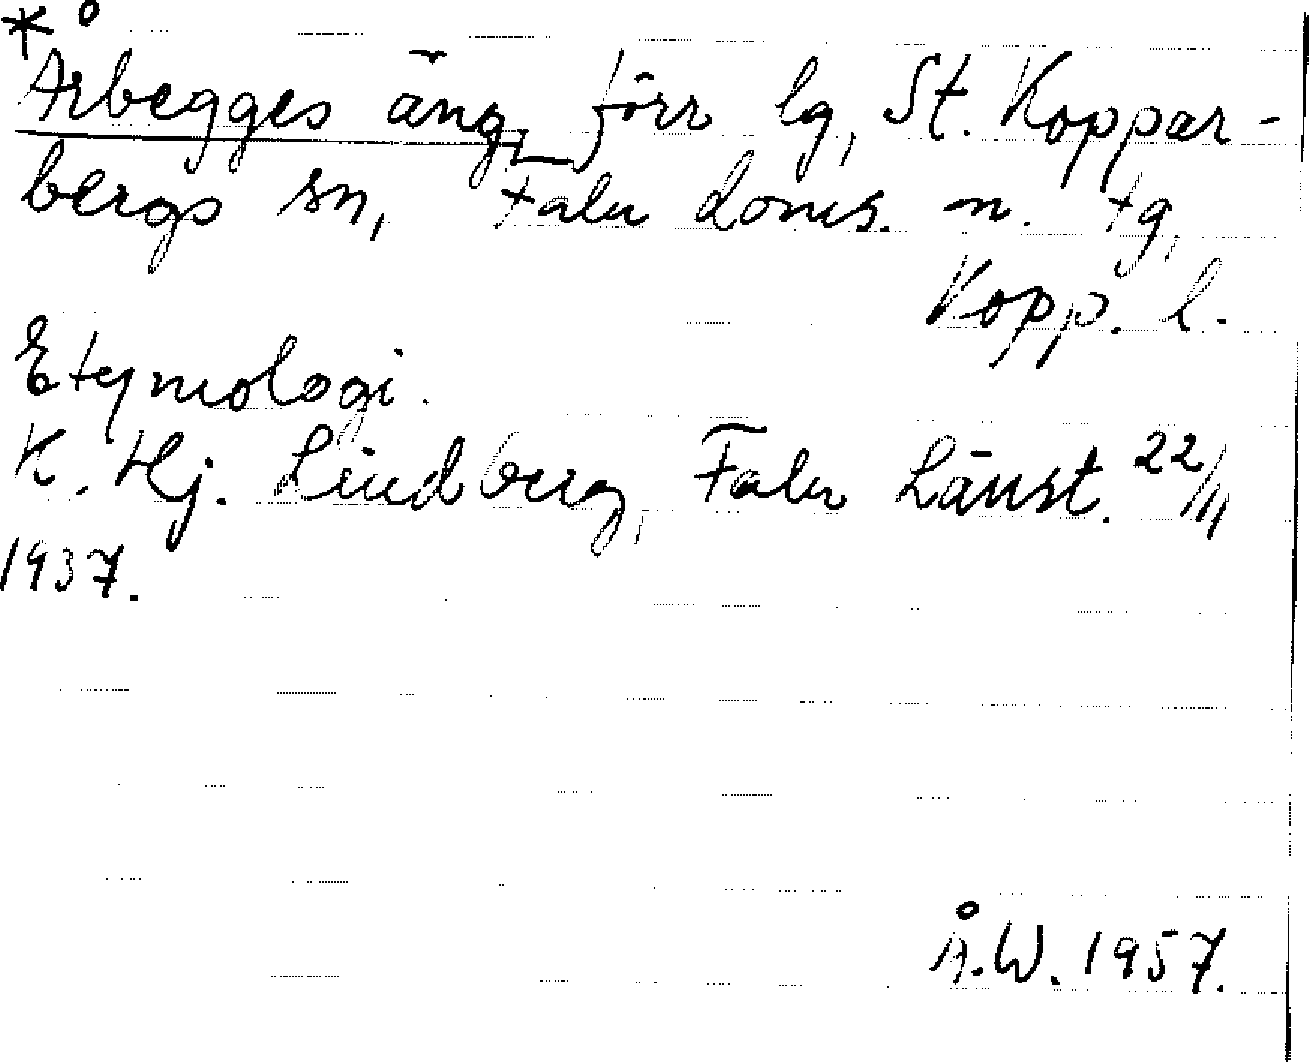 *Årbegges äng, förr lg, St. Koppar-
bergs sn, Falu doms. n. tg,
Kopp. l.
Etymologi.
K. Hj. Lindberg, Falu Länst. 22/11
1937.
Å.W. 1957.